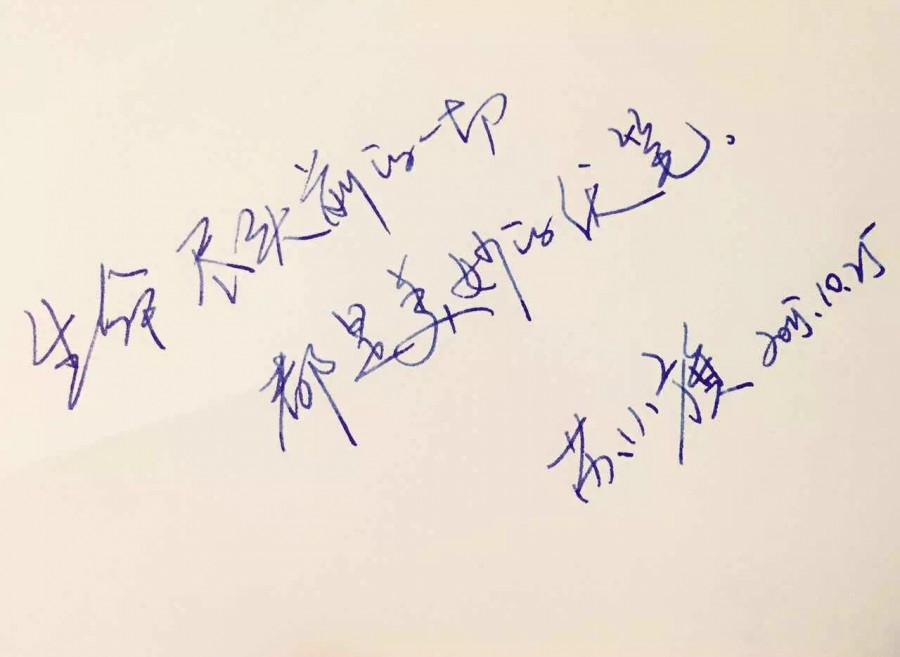 生命尽头前的一切
都是美妙的伏笔.
苏小 2015.10.25